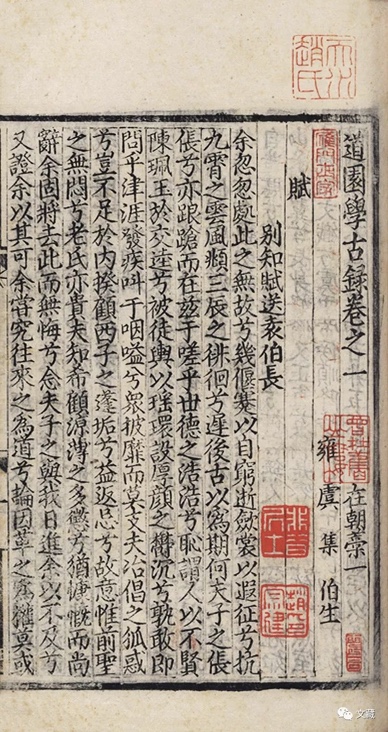 天水趙氏
道園學古録卷之一
在朝藁一
雍 虞 集 伯生
賦
别知賦送袁伯長
余忽忽處此之無故兮幾偃蹇以自窮逝斂裳以遐征兮抗
九霄之雲風頫三辰之徘徊兮遲後古以爲期何夫子之張
張兮亦踉蹌而在兹于嗟乎世德之浩浩兮恥謂人以不賢
陳珮玉於交逵兮被徒輿以瑶環設厚顔之欝沉兮孰敢即
問乎津涯發疾叫于咽嗌兮衆披靡而莫支夫冶倡之狐惑
兮豈不足於内揆顧西子之蓬垢兮益返忌兮故意惟前聖
之無悶兮老氏亦貴夫知希顧源薄之多歉兮猶慷慨而尚
辭余固將去此而無悔兮念夫子之與我日進余以不及兮
又證余以其可余嘗究往來之爲道兮論因革之爲權莫或
非昔居士
趙印宗建
文藏